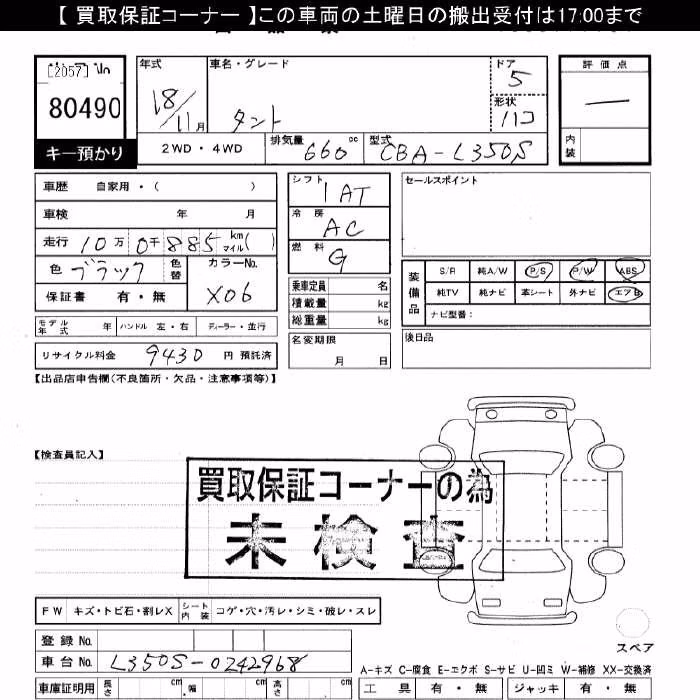 【 買取保証コーナー 】この車両の土曜日の搬出受付は17:00まで
[2057] No
80490
キー預かり
年式
18/11月
車名・グレード
タント
ドア
5
形状
ハコ
2WD・4WD
排気量 660 cc
型式 CBA-L350S
評価点
―
内装
車歴 自家用・( )
車検 年 月
走行 10万0千885 km マイル( )
色 ブラック 色替
カラーNo.
X06
保証書 有・無
モデル年式 年 ハンドル 左・右 ディーラー・並行
リサイクル料金 9430 円 預託済
シフト 1AT
冷房 AC
燃料 G
乗車定員 名
積載量 kg
総重量 kg
名変期限
月 日
セールスポイント
装備品
S/R 純A/W P/S P/W ABS
純TV 純ナビ 革シート 外ナビ エアB
ナビ型番:
後日品
【出品店申告欄(不良箇所・欠品・注意事項等)】
【検査員記入】
買取保証コーナーの為
未検査
FW キズ・トビ石・割レX シート内装 コゲ・穴・汚レ・シミ・破レ・スレ
登録 No.
車台 No. L350S-0242968
車庫証明用 長さ cm 幅 cm 高さ cm
スペア
A-キズ C-腐食 E-エクボ S-サビ U-凹ミ W-補修 XX-交換済
工具 有・無 ジャッキ 有・無